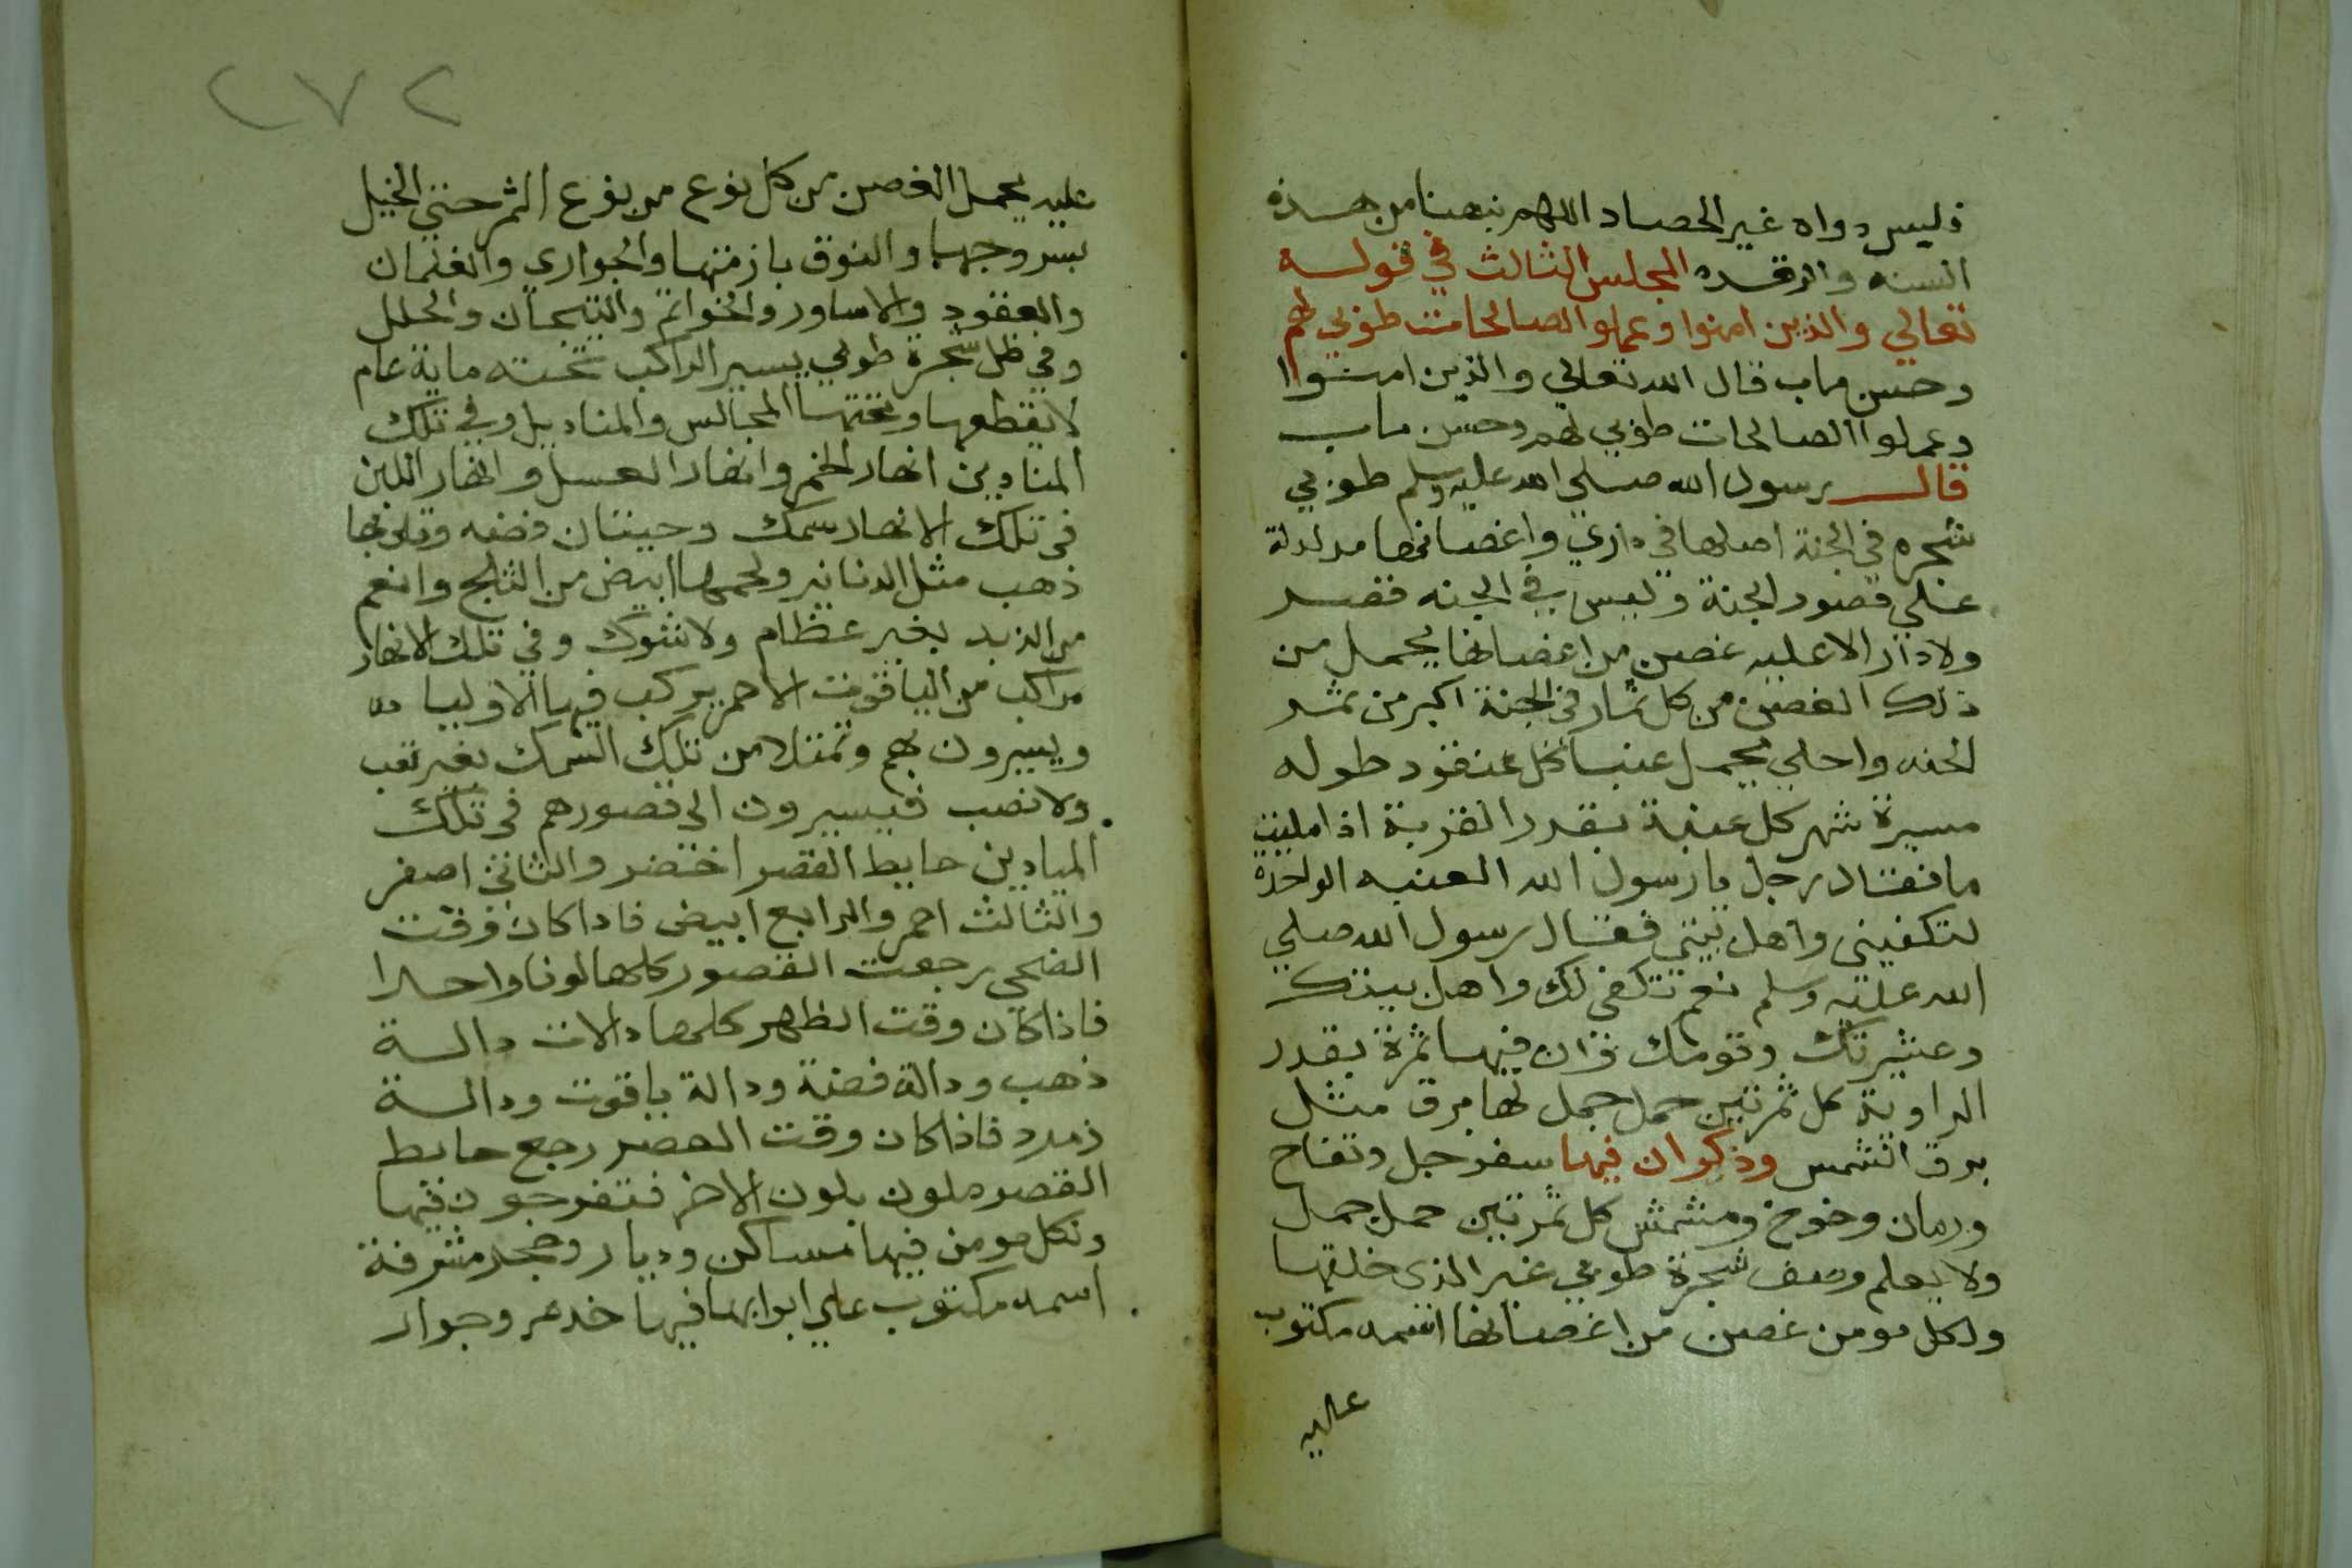 فليس دواه غير الحصاد اللهم نبهنا من هذه
السنه والرقده المجلس الثالث في قوله
تعالي والذين امنوا وعملوا الصالحات طوبي لهم
وحسن ماب قال الله تعالي والذين امنوا
وعملوا الصالحات طوبي لهم وحسن ماب
قال رسول الله صلي الله عليه وسلم طوبي
شجره في الجنة اصلها في داري واغصانها مدلدلة
علي قصور الجنة وليس في الجنه قصر
ولا دار الا عليه غصن من اغصانها يحمل من
ذلك الغصن من كل ثمار في الجنة اكبر من ثمر
الجنه واحلي يحمل عنبا كل عنقود طوله
مسيرة شهر كل عنبة بقدر القربة اذا مليت
ما فقال رجل يا رسول الله العنبه الواحدة
لتكفيني واهل بيتي فقال رسول الله صلي
الله عليه وسلم نعم تكفي لك واهل بيتك
وعشيرتك وقومك وان فيها ثمرة بقدر
الراوية كل ثمرتين حمل جمل لها برق مثل
برق الشمس وذكر ان فيها سفرجل وتفاح
ورمان وخوخ ومشمش كل ثمرتين حمل جمل
ولا يعلم وصف شجرة طوبي غير الذي خلقها
ولكل مومن غصن من اغصانها اسمه مكتوب
عليه
٢٧٢
عليه يحمل الغصن من كل نوع من نوع الثمر حتي الخيل
بسروجها والنوق بازمتها والجواري والغلمان
والعقود والاساور والخواتم والتيجان والحلل
وفي ظل شجرة طوبي يسير الراكب تحته ماية عام
لا يقطعها وتحتها المجالس والمناديل وفي تلك
المنادين انهار الخمر وانهار العسل وانهار اللبن
في تلك الانهار سمك وحيتان فضه وقلوبها
ذهب مثل الدنانير ولحمها ابيض من الثلج وانعم
من الزبد بغير عظام ولا شوك وفي تلك الانهار
مراكب من الياقوت الاحمر يركب فيها الاوليا
ويسيرون بهم وتمتلا من تلك السمك بغير تعب
ولا نصب فيسيرون الي قصورهم في تلك
الميادين حايط القصر اخضر والثاني اصفر
والثالث احمر والرابع ابيض فاذا كان وقت
الضحي رجعت القصور كلها لونا واحدا
فاذا كان وقت الظهر كلها دالات دالة
ذهب ودالة فضة ودالة ياقوت ودالة
زمرد فاذا كان وقت العصر رجع حايط
القصر ملون بلون الاخر فتفرجون فيها
ولكل مومن فيها مساكن وديار وحجر مشرفة
اسمه مكتوب علي ابوابها فيها خدم وجوار